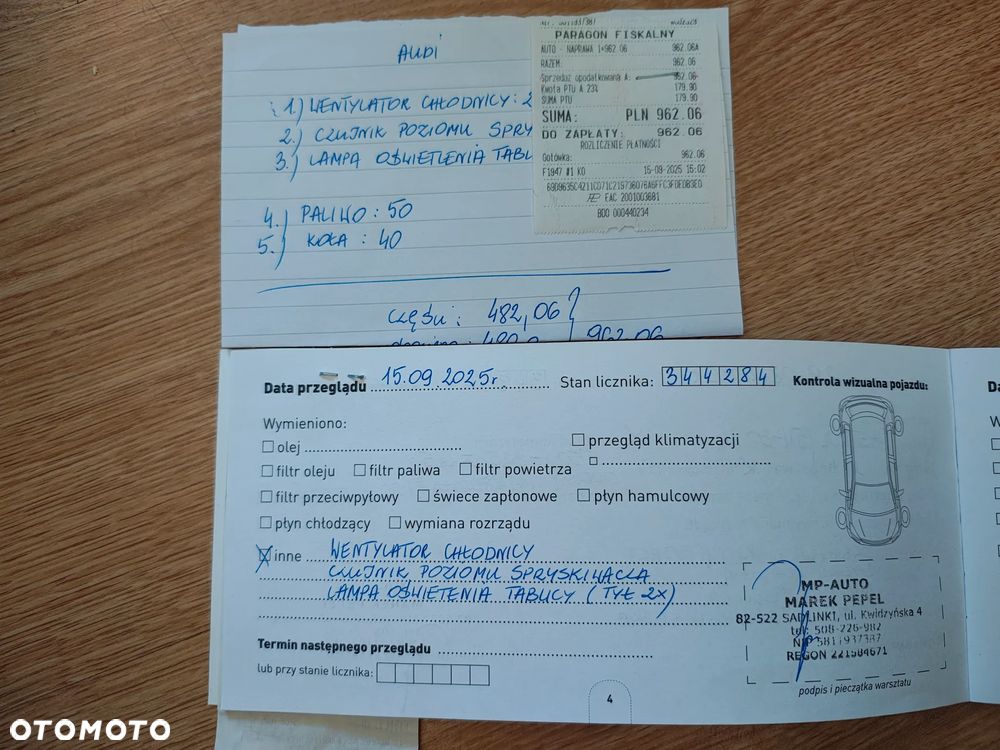 AUDI
1.) WENTYLATOR CHŁODNICY: 2
2.) CZUJNIK POZIOMU SPRY
3.) LAMPA OŚWIETLENIA TABL
4.) PALIWO: 50
5.) KOŁA: 40
części: 482,06
962,06
PARAGON FISKALNY
AUTO - NAPRAWA 1*962.06 962.06A
RAZEM: 962.06
Sprzedaż opodatkowana A: 962.06
Kwota PTU A 23% 179.90
SUMA PTU 179.90
SUMA: PLN 962.06
DO ZAPŁATY: 962.06
ROZLICZENIE PŁATNOŚCI
Gotówka: 962.06
F1947 #1 KO 15-09-2025 15:02
EAC 2001003681
BDO 000440234
Data przeglądu 15.09.2025r. Stan licznika: 344284 Kontrola wizualna pojazdu:
Wymieniono:
olej przegląd klimatyzacji
filtr oleju filtr paliwa filtr powietrza
filtr przeciwpyłowy świece zapłonowe płyn hamulcowy
płyn chłodzący wymiana rozrządu
inne WENTYLATOR CHŁODNICY
CZUJNIK POZIOMU SPRYSKIWACZA
LAMPA OŚWIETENIA TABLICY (TYŁ 2X)
MP-AUTO
MAREK PEPEL
82-522 SADLINKI, ul. Kwidzyńska 4
tel. 508-226-982
NIP 5811937387
REGON 221584671
podpis i pieczątka warsztatu
Termin następnego przeglądu
lub przy stanie licznika:
4
OTOMOTO